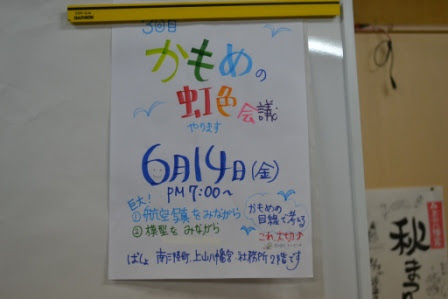 3回目
かもめの
虹色会議
やります
6月14日(金)
PM 7:00〜
巨大!
①航空写真をみながら
②模型をみながら
かもめの
目線で考える
これ、大切よ
ばしょ 南三陸町 上山八幡宮 社務所2階です
秋まつ